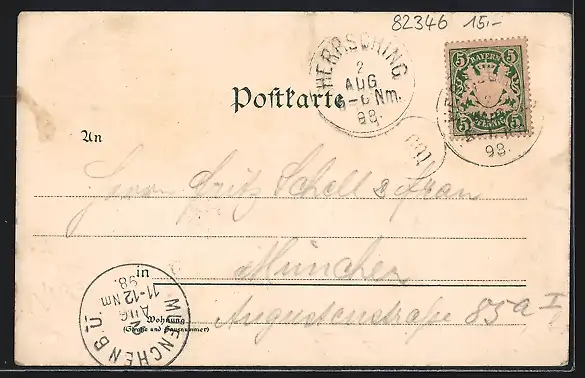 82346 15.-
5 BAYERN 5
5 PFENNIG 5
HERRSCHING
2
AUG
5-6 Nm.
98.
98.
Postkarte
An
Herrn Fritz Scholl & Frau
in München
Wohnung Augustenstraße 85a I
(Straße und Hausnummer)
MUENCHEN B.U.
2
AUG
11-12 Nm
98.